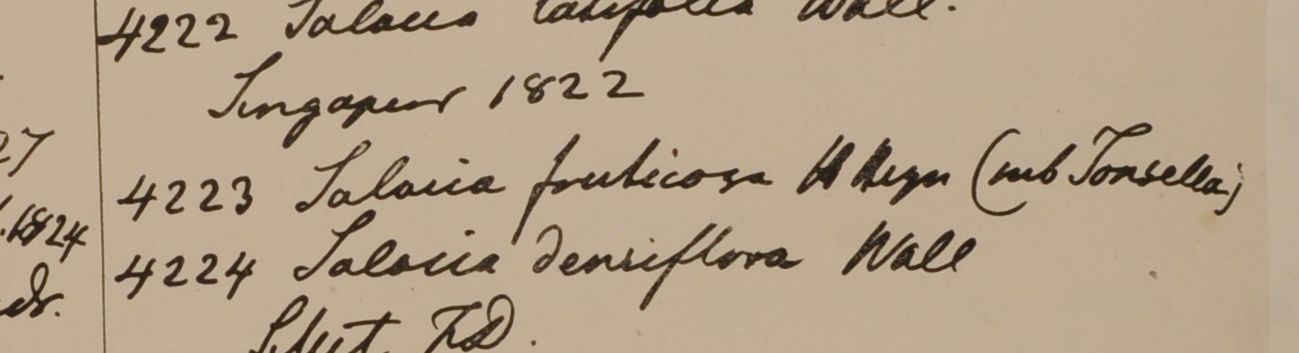 27
.1824
ds.
4222 Salacia latifolia Wall.
Singapur 1822
4223 Salacia fruticosa H Heyn (sub Tonsella)
4224 Salacia densiflora Wall
Silhet FD.